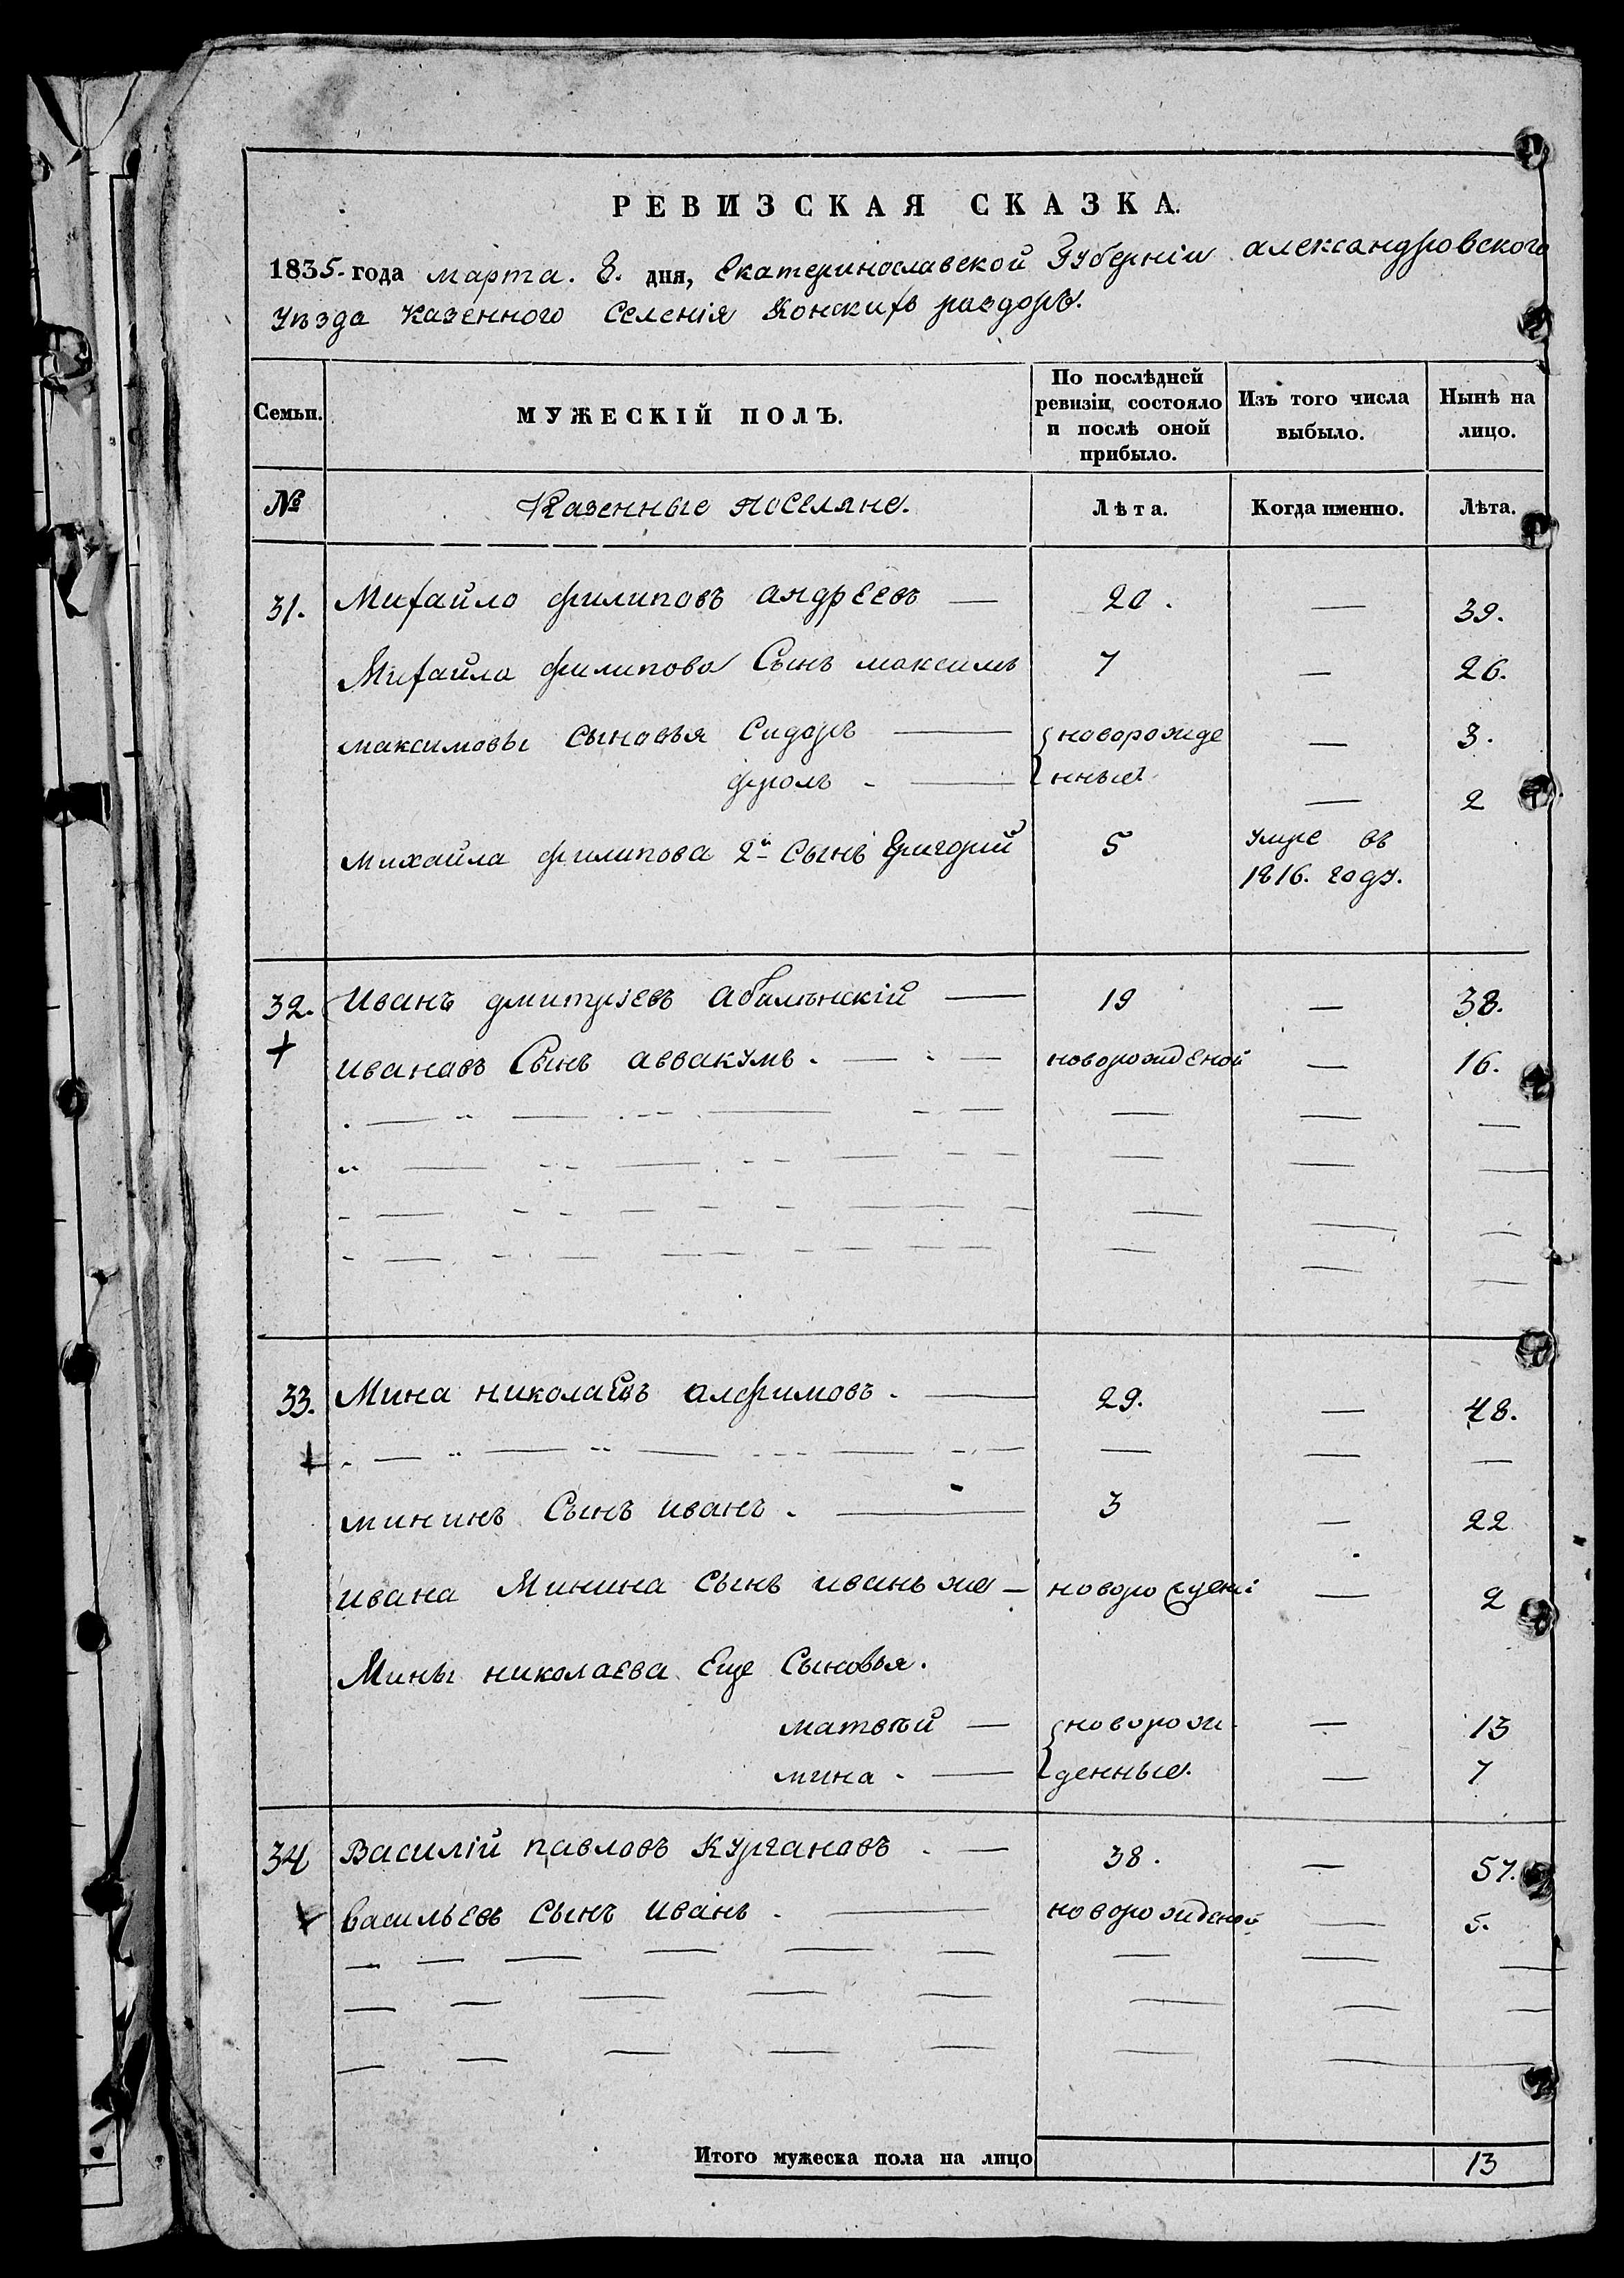 РЕВИЗСКАЯ СКАЗКА.
1835. года марта. 8. дня, Екатеринославской Губерніи александровского
уѣзда казенного Селенія Конскихъ раздоръ.
Семьи.
МУЖЕСКІЙ ПОЛЪ.
По послѣдней ревизіи состояло и послѣ оной прибыло.
Изъ того числа выбыло.
Нынѣ на лицо.
№ Казенные поселяне. Лѣта. Когда именно. Лѣта.
31. Михайло филиповъ андреевъ — 20. — 39.
Михайла филипова Сынъ максимъ 7 — 26.
максимовы сыновья Сидоръ — новорожде — 3.
фролъ - — нные — 2
михайла филипова 2й Сынъ Григорий 5 умре въ
1816. году.
32. Иванъ дмитріевъ абалмънскій — 19 — 38.
+ ивановъ Сынъ аввакумъ. — новорожденой — 16.
33. Мина николаевъ алфимовъ. — 29. — 48.
+
мининъ Сынъ иванъ. — 3 — 22
ивана Минина сынъ иванъ же — новорождені — 2
Мины николаева Еще Сыновья.
матвѣй — новорож — 13
мина - — денные. — 7
34 Василій павловъ Кургановъ . — 38. — 57.
+ васильевъ сынъ иванъ . — новорожденой — 5.
Итого мужеска пола на лицо 13